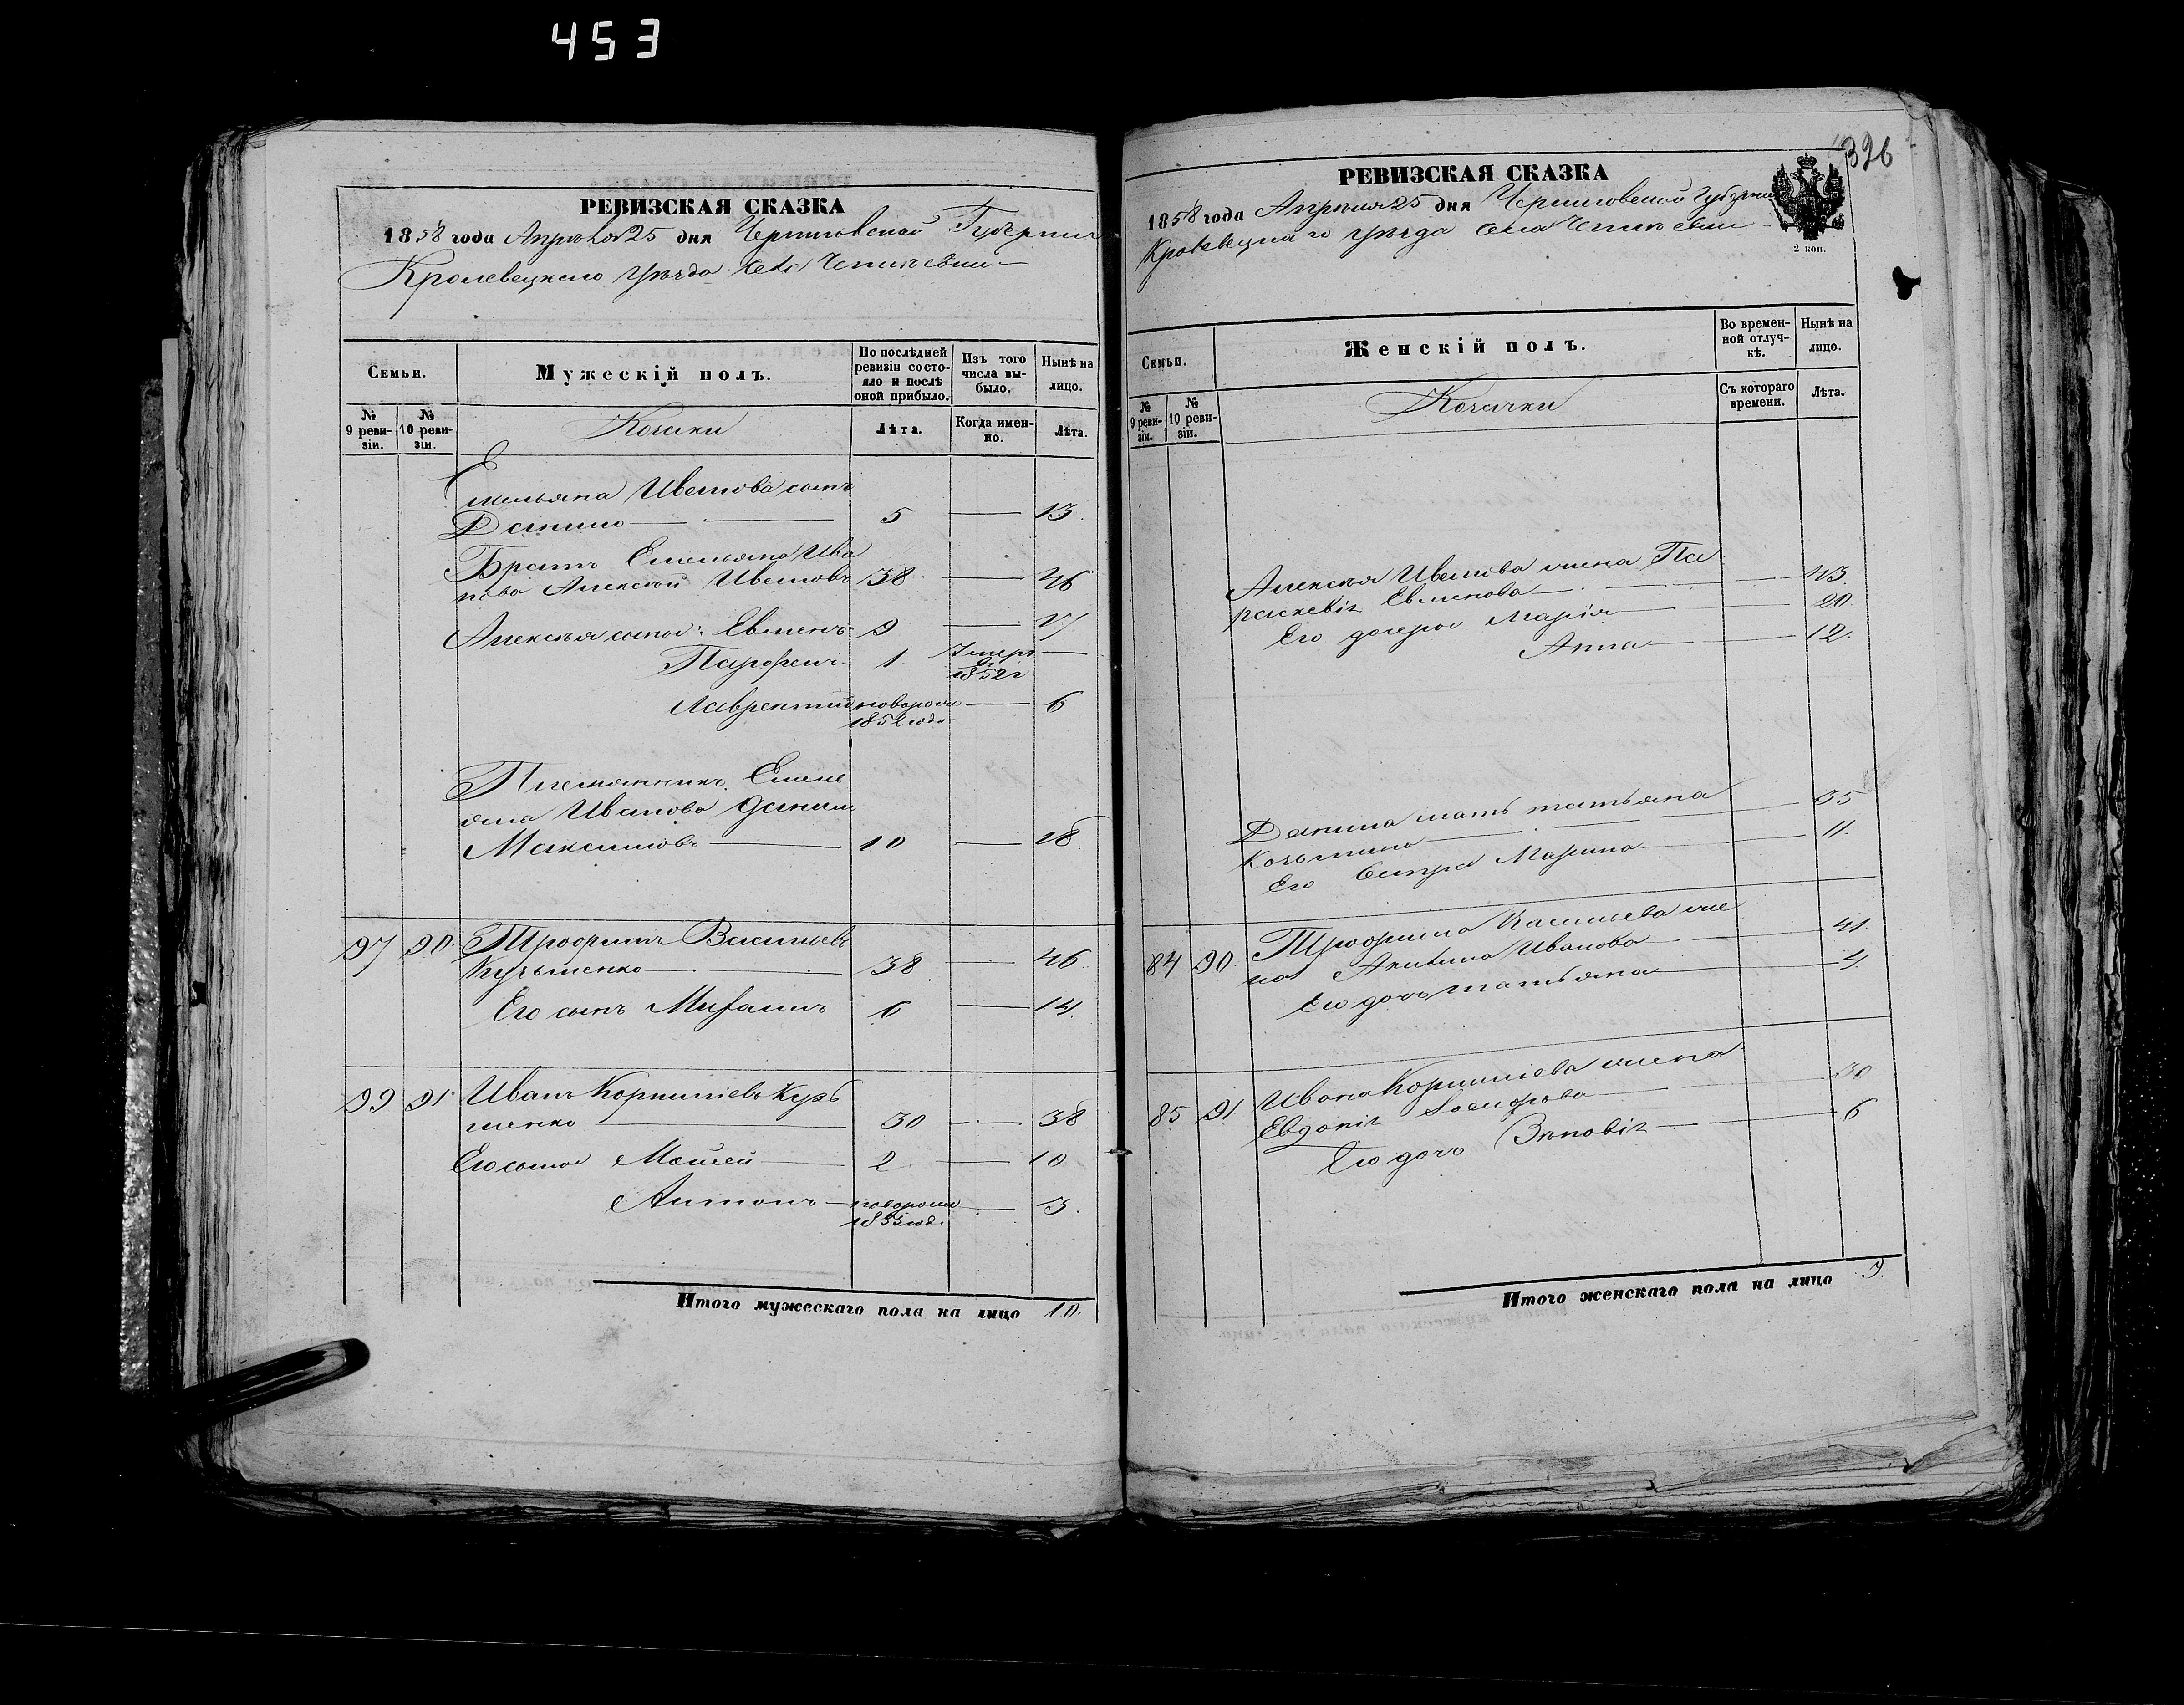 453
РЕВИЗСКАЯ СКАЗКА
1858 года Апреля 25 дня Черниговской Губернии
Кролевецкаго уезда села
Семьи.
Мужескій полъ.
По послѣдней ревизіи состояло и послѣ оной прибыло.
Изъ того числа выбыло.
Нынѣ на лицо.
№ 9 ревизіи.
№ 10 ревизіи.
Козаки
Лѣта.
Когда именно.
Лѣта.
Емельяна Иванова сынъ
Данило 5 13.
Братъ Емельяна Ива
нова Алексѣй Ивановъ 38 46
Алексѣя сыновя: Евменъ 9 17
Парфенъ 1. Умеръ 1852г
Лаврентий новорожд 1852 года 6
Племянникъ Емель
яна Иванова Данило
Максимовъ 10 18
97 90. Трофимъ Васильевъ
Кузьменко 38 46.
Его сынъ Михаилъ 6 14.
99 91 Иванъ Корнѣіевъ Кузь
менко 30 38
Его сыновя Мойсей 2 10
Антонъ новорожд 1855 год. 3.
Итого мужескаго пола на лицо 10.
326
РЕВИЗСКАЯ СКАЗКА
1858 года Апреля 25 дня Черниговской Губернии
Кролевецкаго уезда села
2 коп.
Семьи.
Женскій полъ.
Во временной отлучкѣ.
Нынѣ на лицо.
№ 9 ревизіи.
№ 10 ревизіи.
Козачки
Съ котораго времени.
Лѣта.
Алексѣя Иванова жена Па
раскевія Евменова 43.
Его дочери Марія 20.
Анна 12.
Данила мать татьяна
Козьмина 35
Его Сестра Марина 11.
84 90. Трофима Васильева же
на Акилина Иванова 41
Его дочь татьяна 4.
85 91 Ивана Корнѣіева жена
Евдокія 30
Его дочь Зѣновія 6
Итого женскаго пола на лицо 9.